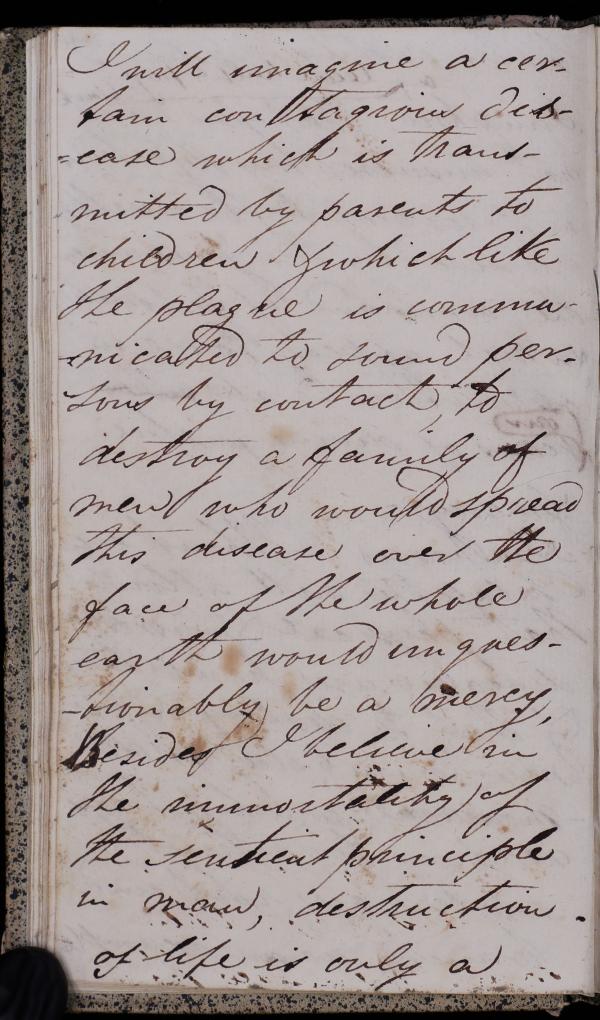 I will imagine a cer-
tain contagious dis-
=ease which is trans-
mitted by parents to
children & which like
the plague is commu-
-nicated to sound per-
sons by contact, to
destroy a family of
men who would spread
this disease over the
face of the whole
earth would unques-
-tionably be a mercy,
Besides I believe in
the immortality of
the sentient principle
in man, destruction
of life is only a